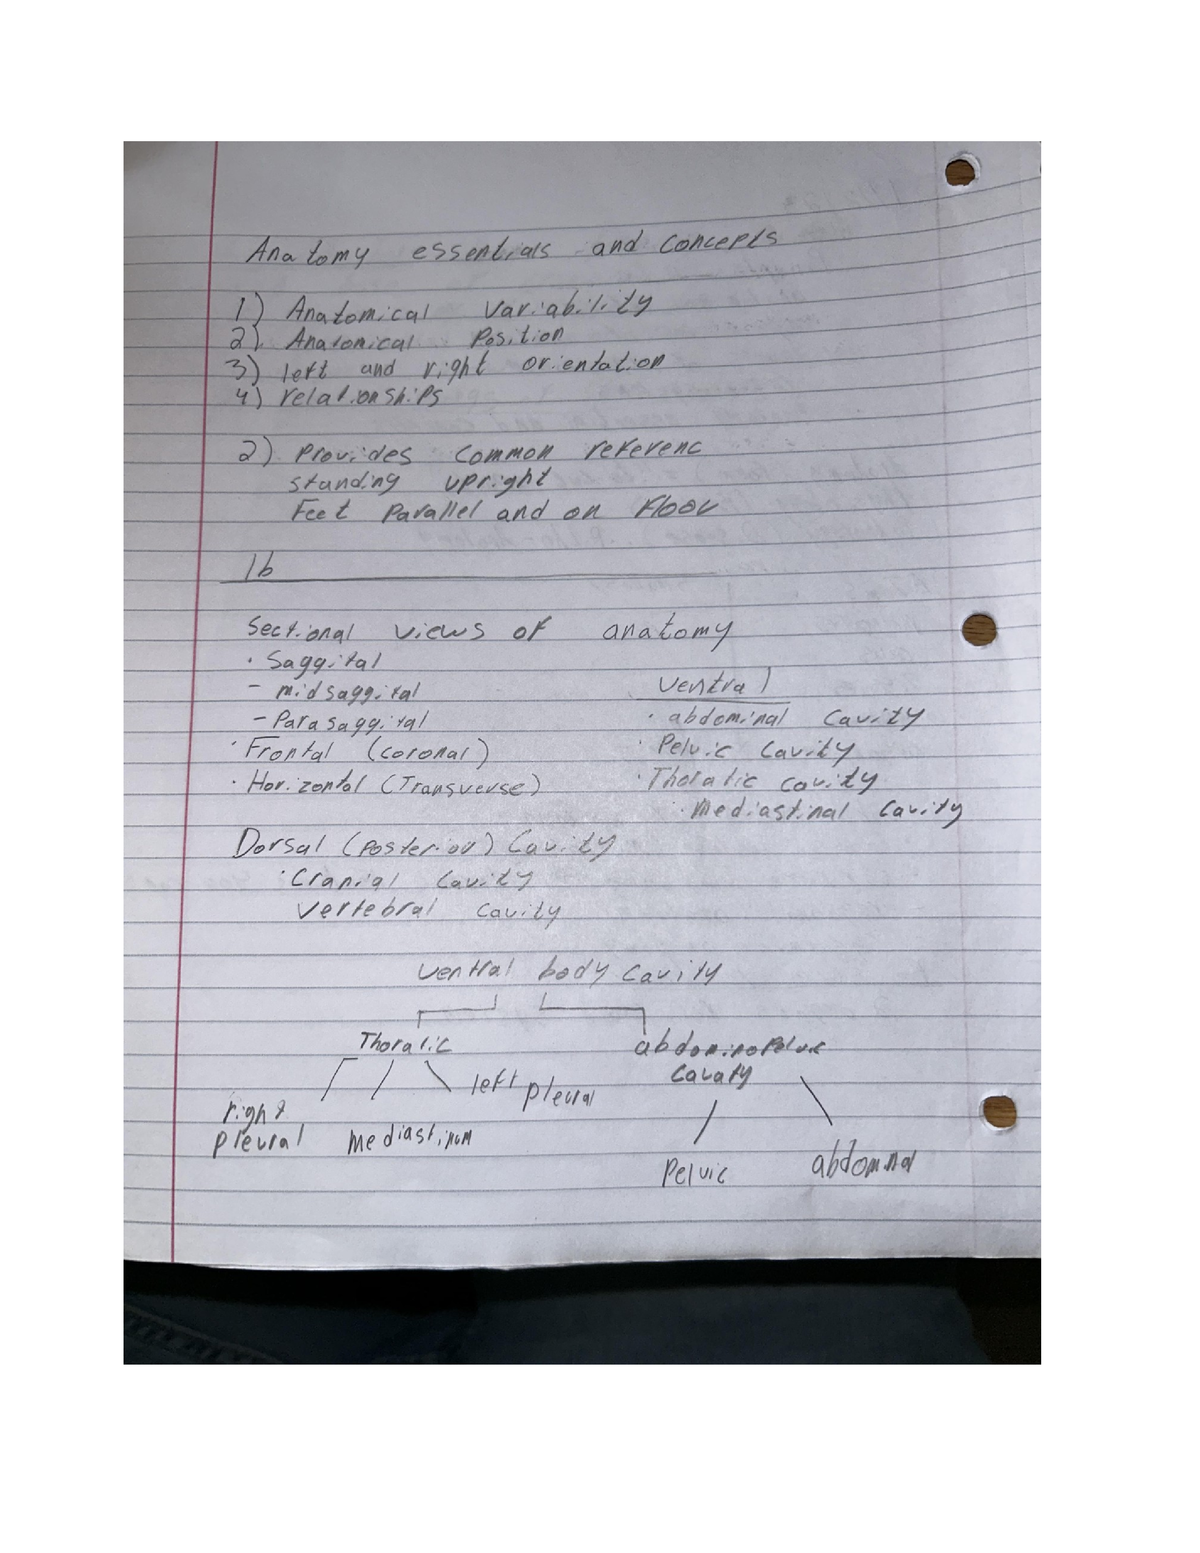 Anatomy essentials and concepts
1) Anatomical Variability
2) Anatomical Position
3) left and right orientation
4) relationships
2) Provides common referenc
standing upright
Feet Parallel and on Floor
1b
Sectional views of anatomy
· Saggital
- midsaggital
- Parasaggital
· Frontal (coronal)
· Horizontal (Transverse)
Ventral
· abdominal cavity
· Pelvic cavity
· Thoratic cavity
· Mediastinal cavity
Dorsal (Posterior) Cavity
· Cranial cavity
Vertebral cavity
Ventral body cavity
Thoratic
abdominoPelvic
cavaty
right
pleural
mediastinum
left pleural
Pelvic
abdominal